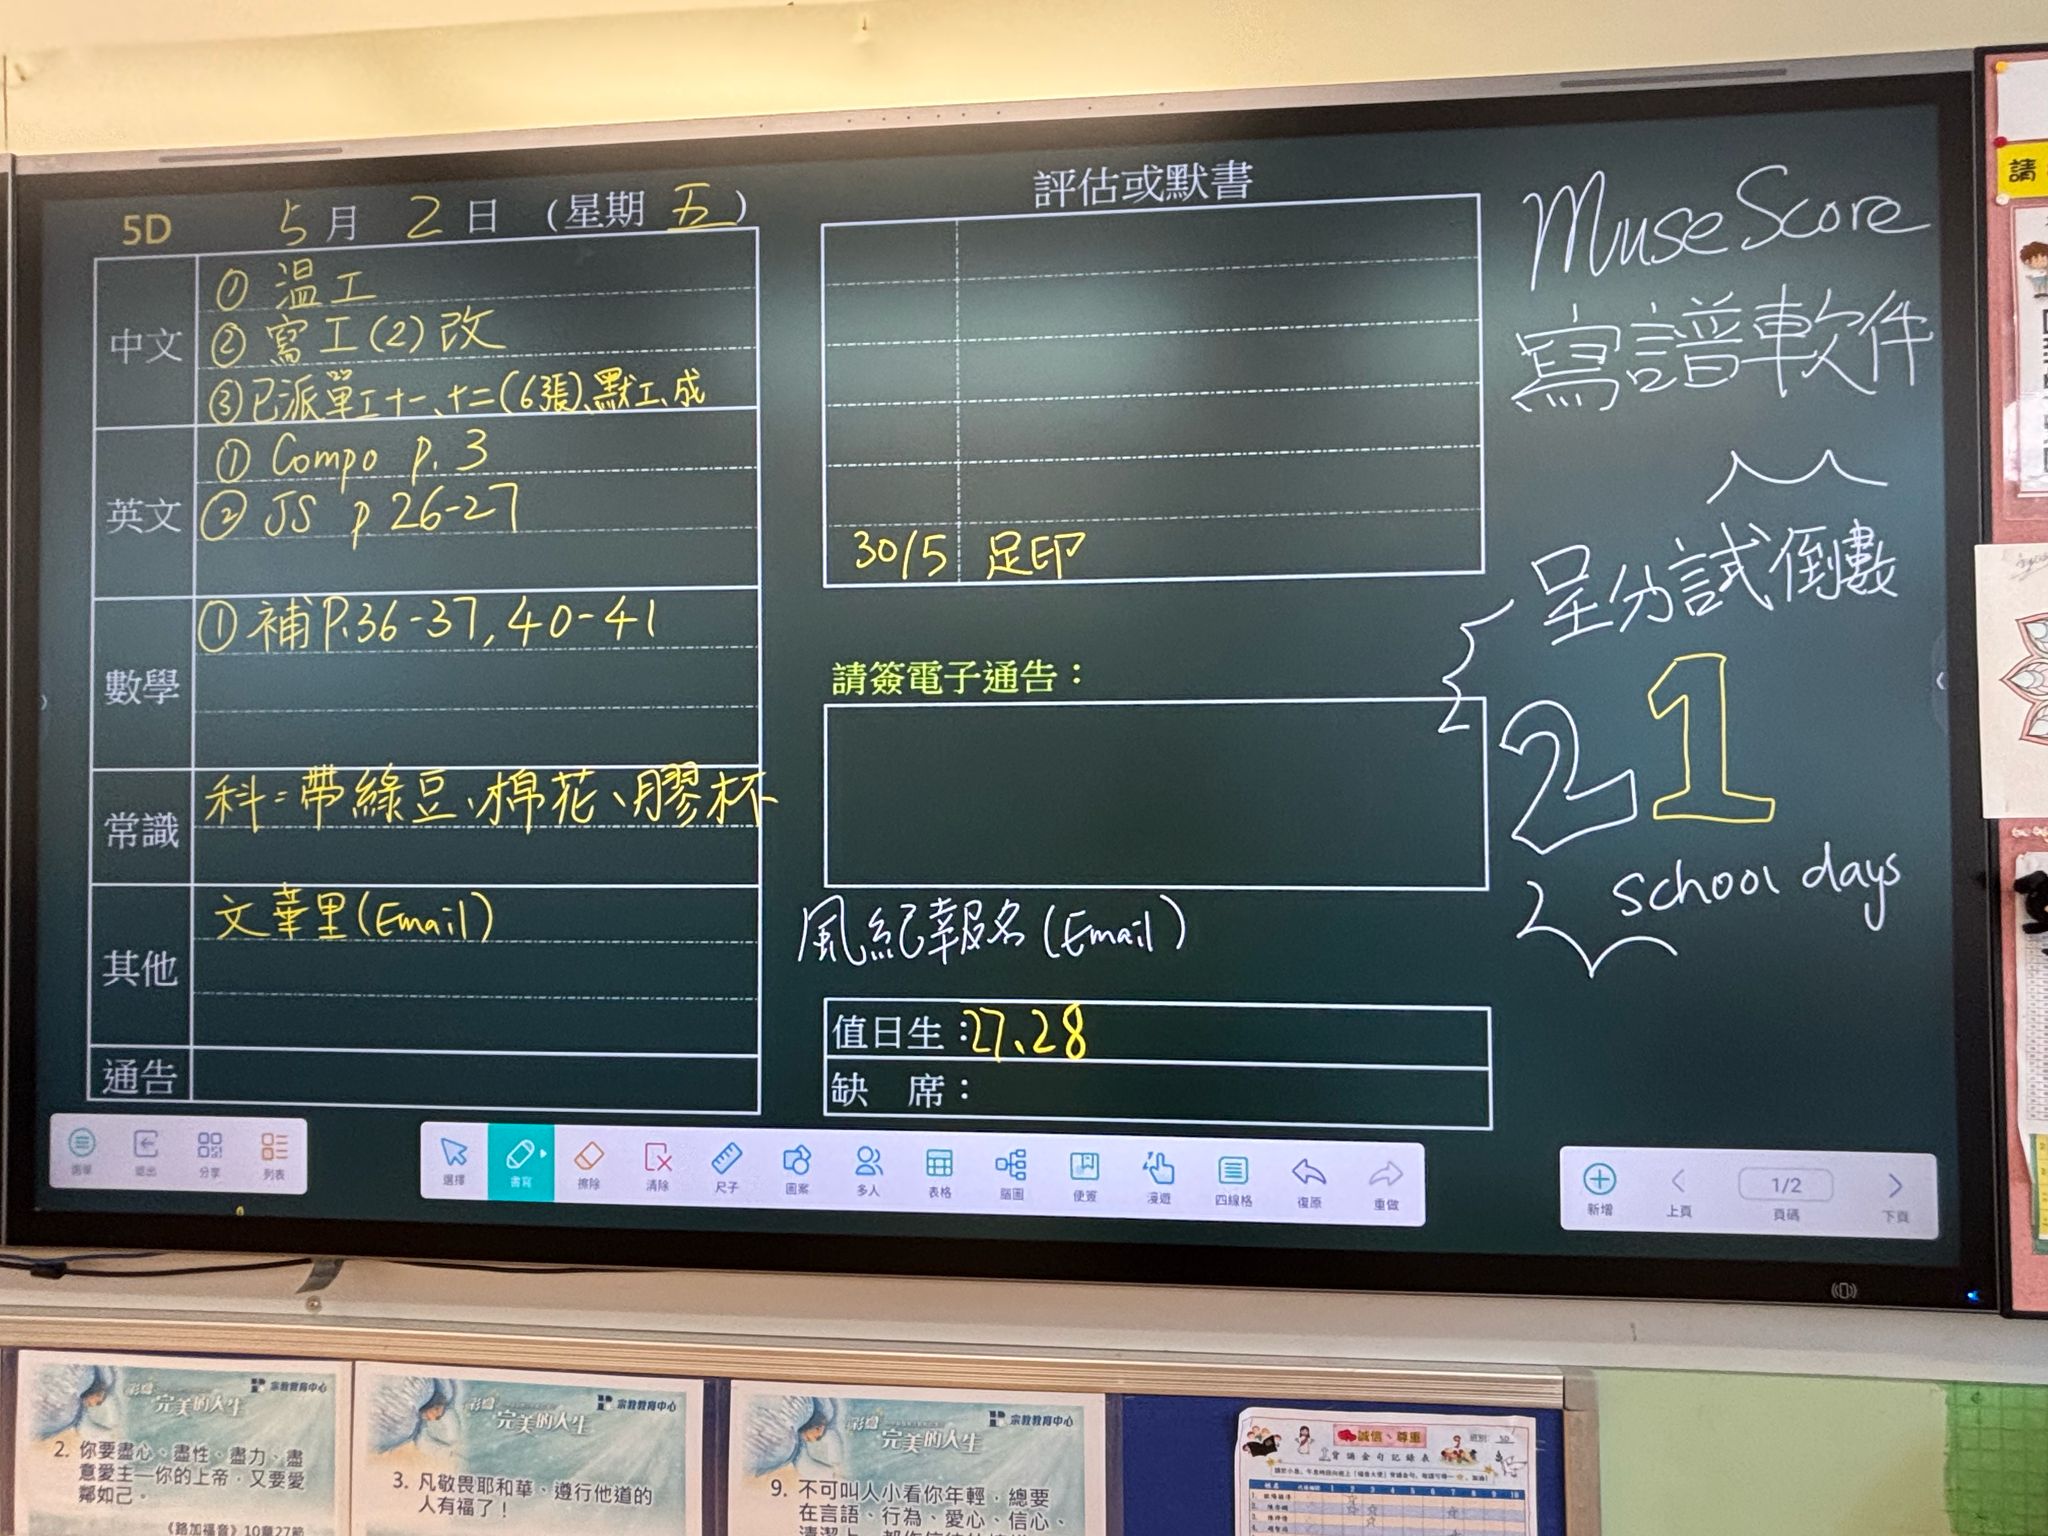 5D 5月2日(星期五)
中文
① 溫工
② 寫工(2)改
③已派單工十一、十二(6張)、默工、成
英文
① Compo p.3
② JS p.26-27
數學
①補P.36-37, 40-41
常識
科:帶綠豆、棉花、膠杯
其他
文華里(Email)
通告
評估或默書
30/5 足印
請簽電子通告:
風紀報名(Email)
值日生:27、28
缺 席:
MuseScore
寫譜軟件
呈分試倒數
21
school days
選單 退出 分享 列表
選擇 書寫 擦除 清除 尺子 圖案 多人 表格 腦圖 便簽 漫遊 四線格 復原 重做
新增 上頁 1/2 頁碼 下頁
請
彩繪
完美的人生
宗教教育中心
2. 你要盡心、盡性、盡力、盡
意愛主—你的上帝,又要愛
鄰如己。
《路加福音》10章27節
彩繪
完美的人生
宗教教育中心
3. 凡敬畏耶和華、遵行他道的
人有福了!
彩繪
完美的人生
宗教教育中心
9. 不可叫人小看你年輕,總要
在言語、行為、愛心、信心、
誠信、尊重
班別: 5D
背誦金句記錄表